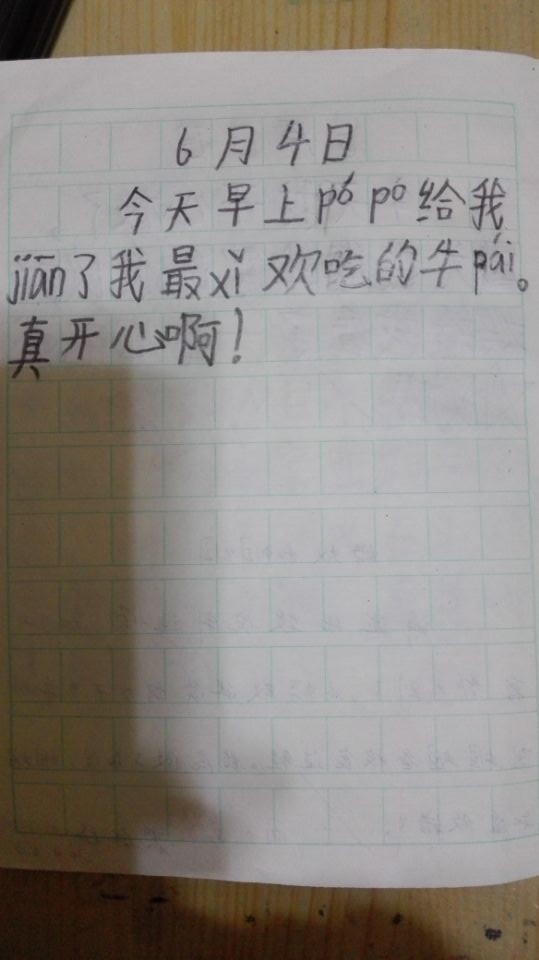 6月4日
今天早上pó po给我
jiān了我最xǐ欢吃的牛pái。
真开心啊！